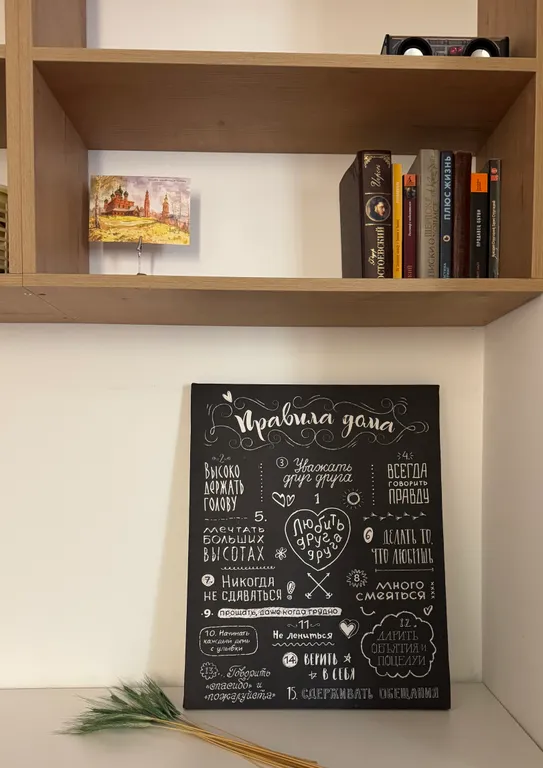 Идиот
Фёдор
ДОСТОЕВСКИЙ
ПЛЮС ЖИЗНЬ
Правила дома
2. 
ВЫСОКО
ДЕРЖАТЬ
ГОЛОВУ
3 Уважать
друг друга
4.
ВСЕГДА
ГОВОРИТЬ
ПРАВДУ
1
Любить
друг
друга
5.
МЕЧТАТЬ
БОЛЬШИХ
ВЫСОТАХ
6 ДЕЛАТЬ ТО,
ЧТО ЛЮБИШЬ
7 НИКОГДА
НЕ СДАВАТЬСЯ
8.
МНОГО
СМЕЯТЬСЯ
9. прощать, даже когда трудно
10. Начинать
каждый день
с улыбки
11
Не лениться
12.
ДАРИТЬ
ОБЪЯТИЯ И
ПОЦЕЛУИ
13. Говорить
"спасибо" и
"пожалуйста"
14 ВЕРИТЬ
В СЕБЯ
15. СДЕРЖИВАТЬ ОБЕЩАНИЯ